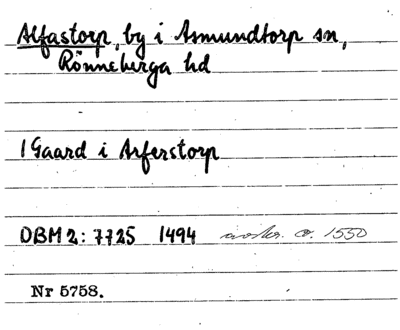 Alfastorp, by i Asmundtorp sn,
Rönneberga hd
1 Gaard i Arferstorp
DBM 2: 7725 1494 avskr. c. 1550
Nr 5758.